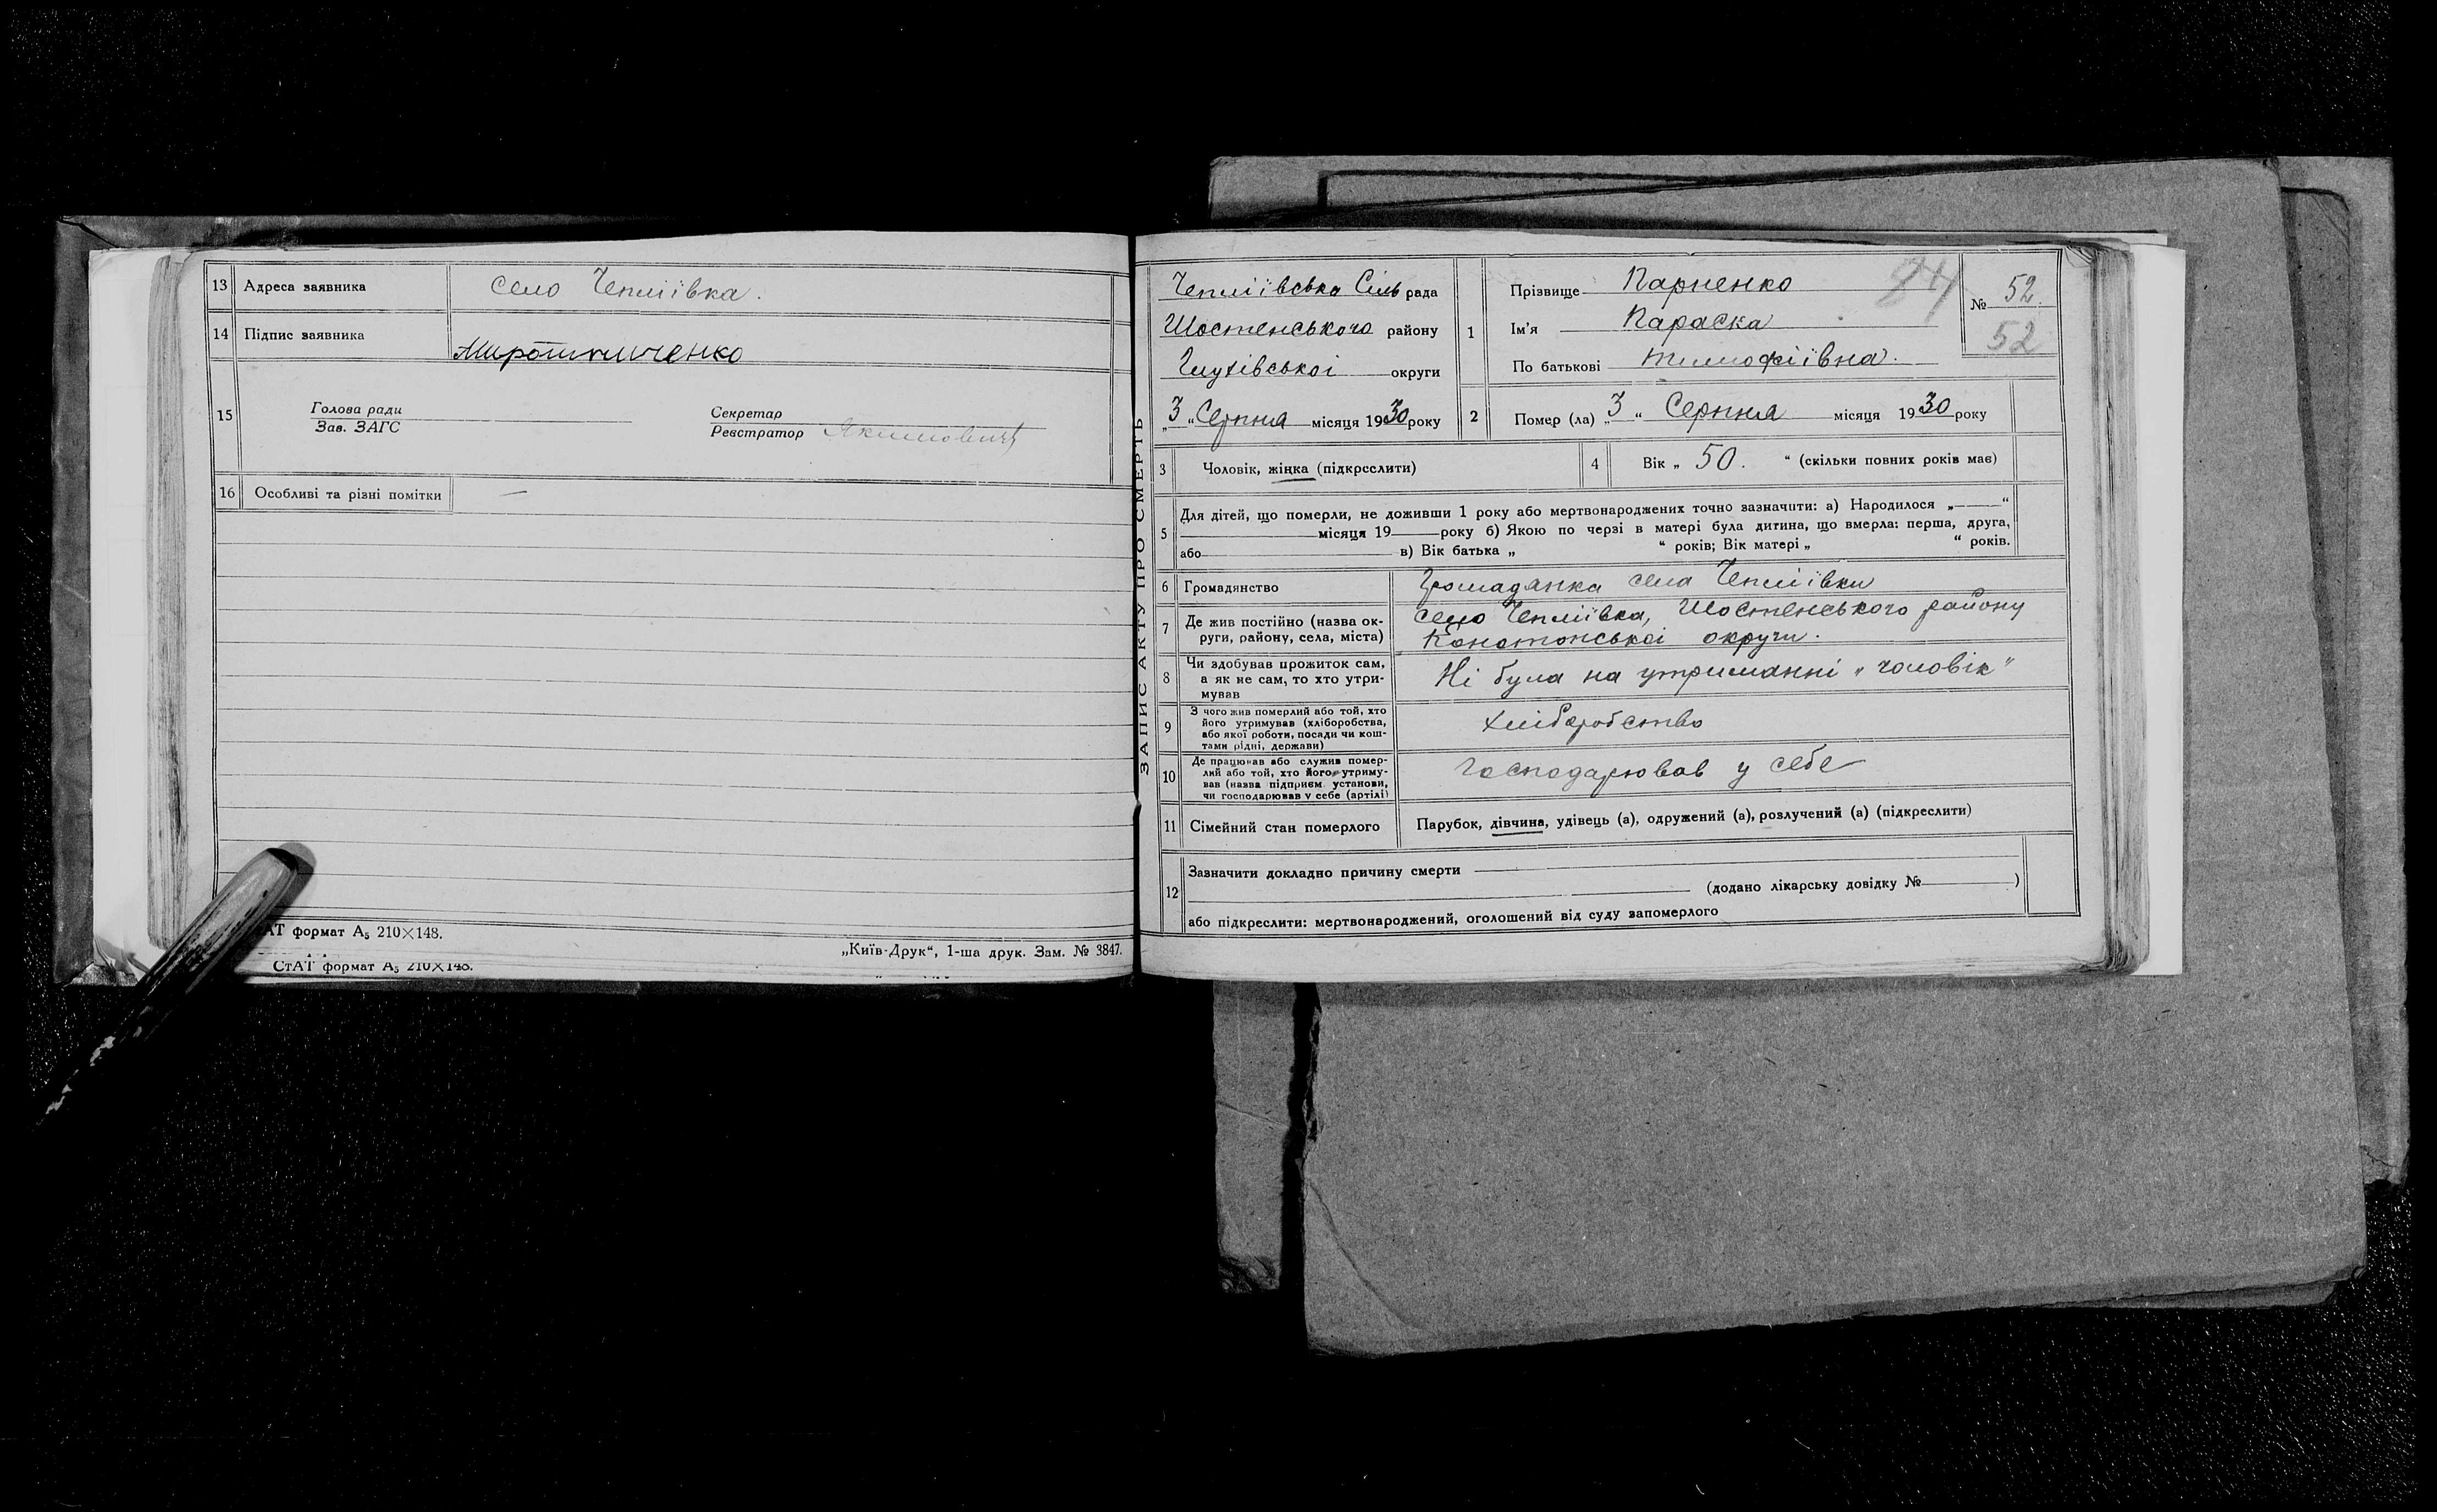 13 Адреса заявника село Чепліївка.
14 Підпис заявника Мирошниченко
15 Голова ради
Зав. ЗАГС
Секретар
Реєстратор Якимович
16 Особливі та різні помітки —
АТ формат А5 210×148.
„Київ-Друк“, 1-ша друк. Зам. № 3847.
СтАТ формат А5 210×148.
ЗАПИС АКТУ ПРО СМЕРТЬ
Чепліївська Сіль рада
Шостенського району
Глухівської округи
„3 “ Серпня місяця 1930 року
1 Прізвище Парненко
Ім'я Параска
По батькові Тимофіївна.
№ 52.
52
2 Помер (ла) „3 “ Серпня місяця 1930 року
3 Чоловік, жінка (підкреслити)
4 Вік „ 50. “ (скільки повних років має)
5 Для дітей, що померли, не доживши 1 року або мертвонароджених точно зазначити: а) Народилося „ “
місяця 19 року б) Якою по черзі в матері була дитина, що вмерла: перша, друга,
або в) Вік батька „ “ років; Вік матері „ “ років.
6 Громадянство Громадянка села Чепліївки
7 Де жив постійно (назва ок-
руги, району, села, міста)
село Чепліївка, Шостенського району
Конотопської округи.
8 Чи здобував прожиток сам,
а як не сам, то хто утри-
мував
Ні була на утриманні „чоловік“
9 З чого жив померлий або той, хто
його утримував (хліборобства,
або якої роботи, посади чи кош-
тами рідні, держави)
хліборобство
10 Де працював або служив помер-
лий або той, хто його утриму-
вав (назва підприєм. установи,
чи господарював у себе (артілі)
Господарював у себе
11 Сімейний стан померлого Парубок, дівчина, удівець (а), одружений (а), розлучений (а) (підкреслити)
12 Зазначити докладно причину смерти
(додано лікарську довідку № )
або підкреслити: мертвонароджений, оголошений від суду запомерлого